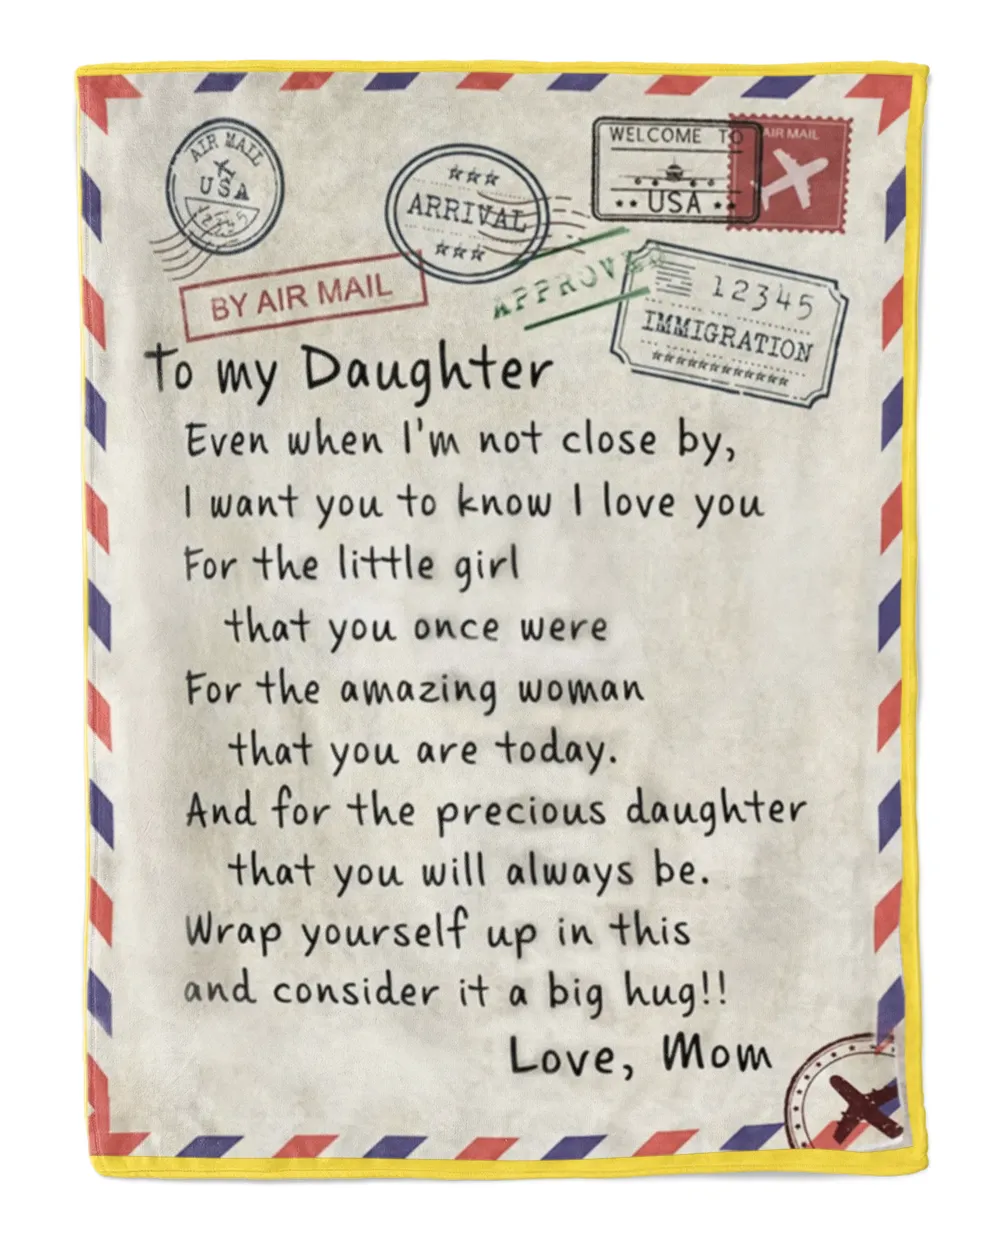 AIR MAIL
USA
12345
★★★
ARRIVAL
★★★
WELCOME TO
★★ USA ★★
AIR MAIL
BY AIR MAIL
APPROVED
12345
IMMIGRATION
★★★★★★★★★★★
To my Daughter
Even when I'm not close by,
I want you to know I love you
For the little girl
that you once were
For the amazing woman
that you are today.
And for the precious daughter
that you will always be.
Wrap yourself up in this
and consider it a big hug!!
Love, Mom